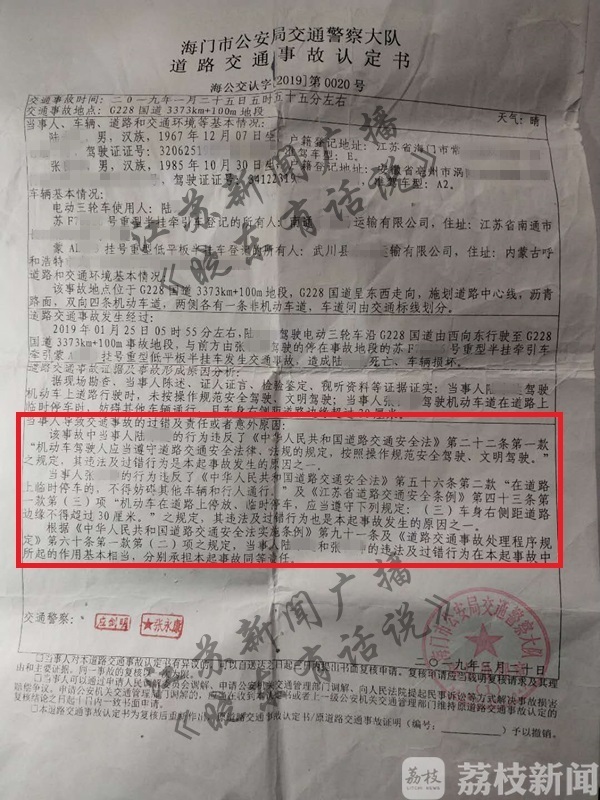 海门市公安局交通警察大队
道路交通事故认定书
海公交认字[2019]第0020号
交通事故时间：二0一九年一月二十五日五时五十五分左右
天气：晴
交通事故地点：G228国道3373km+100m地段
当事人、车辆、道路和交通环境等基本情况：
陆 男，汉族，1967年12月07日生 户籍登记地址：江苏省海门市常
驾驶证证号：3206251 准驾车型：E。
张 男，汉族，1985年10月30日生 户籍登记地址：安徽省亳州市涡
驾驶证证号：34122319 准驾车型：A2。
车辆基本情况：
电动三轮车使用人：陆
苏F 号重型半挂牵引车登记的所有人：南通 运输有限公司，住址：江苏省南通市
蒙A 挂号重型低平板半挂车登记的所有人：武川县 运输有限公司，住址：内蒙古呼
和浩特
道路和交通环境基本情况：
该事故地点位于G228国道3373km+100m地段，G228国道呈东西走向，施划道路中心线，沥青
路面，双向四条机动车道，两侧各有一条非机动车道，车道间由交通标线划分。
道路交通事故发生经过：
2019年01月25日05时55分左右，陆 驾驶电动三轮车沿G228国道由西向东行驶至G228
国道3373km+100m事故地段，与前方由张 驾驶的停在事故地段的苏F 号重型半挂牵引车
牵引蒙A 挂号重型低平板半挂车发生交通事故，造成陆 死亡、车辆损坏。
道路交通事故证据及事故形成原因分析：
据现场勘查、当事人陈述、证人证言、检验鉴定、视听资料等证据证实：当事人陆 驾驶
机动车上道路行驶时，未按操作规范安全驾驶、文明驾驶；当事人张 驾驶机动车在道路上
临时停车时，妨碍其他车辆通行，且车身右侧距道路边缘超过30厘米。
当事人导致交通事故的过错及责任或者意外原因：
该事故中当事人陆 的行为违反了《中华人民共和国道路交通安全法》第二十二条第一款
“机动车驾驶人应当遵守道路交通安全法律、法规的规定，按照操作规范安全驾驶、文明驾驶。”
之规定，其违法及过错行为是本起事故发生的原因之一。
当事人张 的行为违反了《中华人民共和国道路交通安全法》第五十六条第二款“在道路
上临时停车的，不得妨碍其他车辆和行人通行。”及《江苏省道路交通安全条例》第四十三条第
一款第（三）项“机动车在道路上停放、临时停车，应当遵守下列规定：（三）车身右侧距道路
边缘不得超过30厘米，”之规定，其违法及过错行为也是本起事故发生的原因之一。
根据《中华人民共和国道路交通安全法实施条例》第九十一条及《道路交通事故处理程序规
定》第六十条第一款第（二）项之规定，当事人陆 和张 的违法及过错行为在本起事故中
所起的作用基本相当，分别承担本起事故同等责任。
交通警察：
应剑明
★张永康
海门市公安局交通警察大队
二0一九年三月 十日
江苏新闻广播
《晓东有话说》
江苏新闻广播
《晓东有话说》
荔枝 荔枝新闻